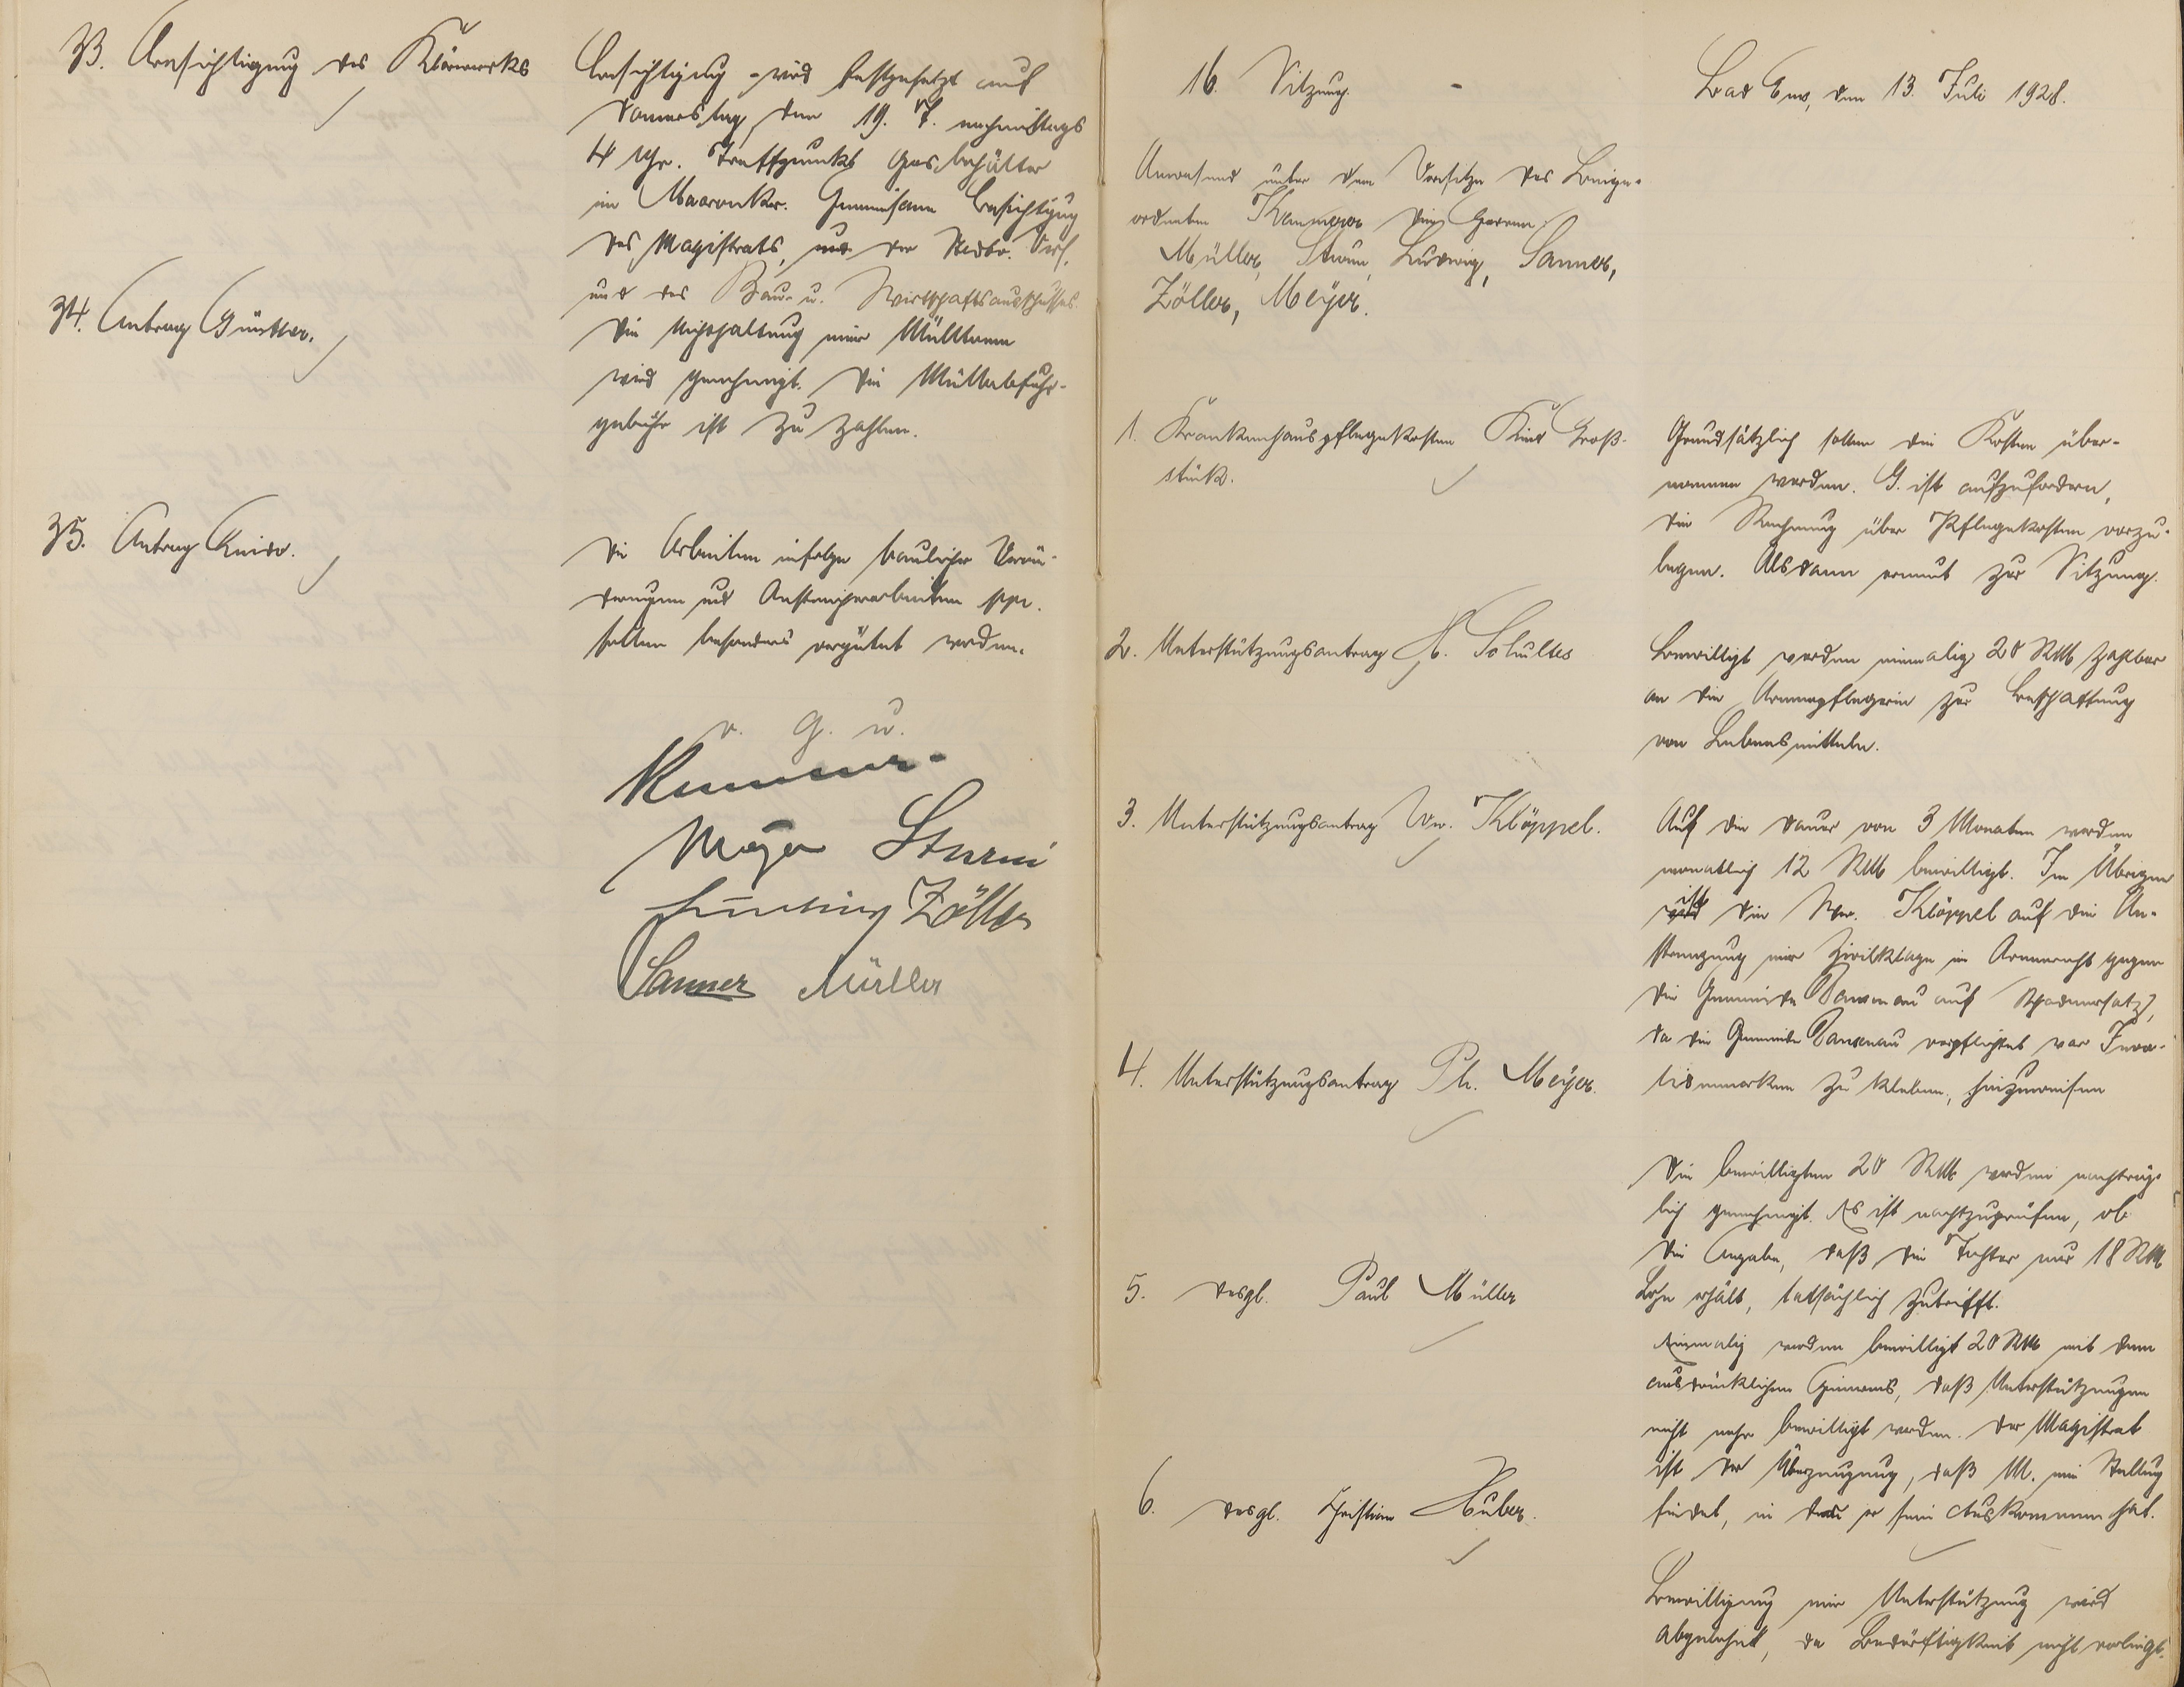 33. Besichtigung des Klärwerks
Besichtigung wird festgesetzt auf
Donnerstag, den 19. 7. nachmittags
4 Uhr. Treffpunkt Gasbehälter
im Gemeinsame Besichtigung
des Magistrats, und der Stadtv. Vers.
und des Bau- u. Wirtschaftsausschusses.
34. Antrag Günther.
Die Aufstellung einer Mülltonne
wird genehmigt. Die Müllabfuhr-
gebühr ist zu zahlen.
35. Antrag
Die Arbeiten infolge baulicher Verän-
derungen und Anstreicherarbeiten ppr.
sollen besonders vergütet werden.
v. g. u.
Kemmer
Meyer Sturm
Ludwig Zöller
Sanner Müller
16. Sitzung.
Bad Ems, den 13. Juli 1928.
Anwesend unter dem Vorsitze des Beige-
ordneten Kemmer die Herren:
Müller, Sturm, Ludwig, Sanner,
Zöller, Meyer.
1. Krankenhauspflegekosten Kind Groß-
stück.
Grundsätzlich sollen die Kosten über-
nommen werden. G. ist aufzufordern,
die Rechnung über Pflegekosten vorzu-
legen. Alsdann erneut zur Sitzung.
2. Unterstützungsantrag H. Schultes
Bewilligt werden einmalig 20 RM zahlbar
an die Armenpflegerin zur Beschaffung
von Lebensmitteln.
3. Unterstützungsantrag Ww. Klöppel.
Auf die Dauer von 3 Monaten werden
monatlich 12 RM bewilligt. Im Übrigen
ist die Ww. Klöppel auf die An-
strengung einer Zivilklage in Armenrecht gegen
die Gemeinde Dausenau auf Schadenersatz,
da die Gemeinde Dausenau verpflichtet war Inva-
lidenmarken zu kleben, hinzuweisen
4. Unterstützungsantrag Ph. Meyer.
Die bewilligten 20 RM werden nachträg-
lich genehmigt. Es ist nachzuprüfen, ob
die Angabe, daß die Tochter nur 18 RM
Lohn erhält, tatsächlich zutrifft.
5. desgl. Paul Müller
Einmalig werden bewilligt 20 RM mit dem
ausdrücklichen Hinweis, daß Unterstützungen
nicht mehr bewilligt werden. Der Magistrat
ist der Überzeugung, daß M. eine Stellung
findet, in der er sein Auskommen hat.
6. desgl. Christian Huber.
Bewilligung einer Unterstützung wird
abgelehnt, da Bedürftigkeit nicht vorliegt.